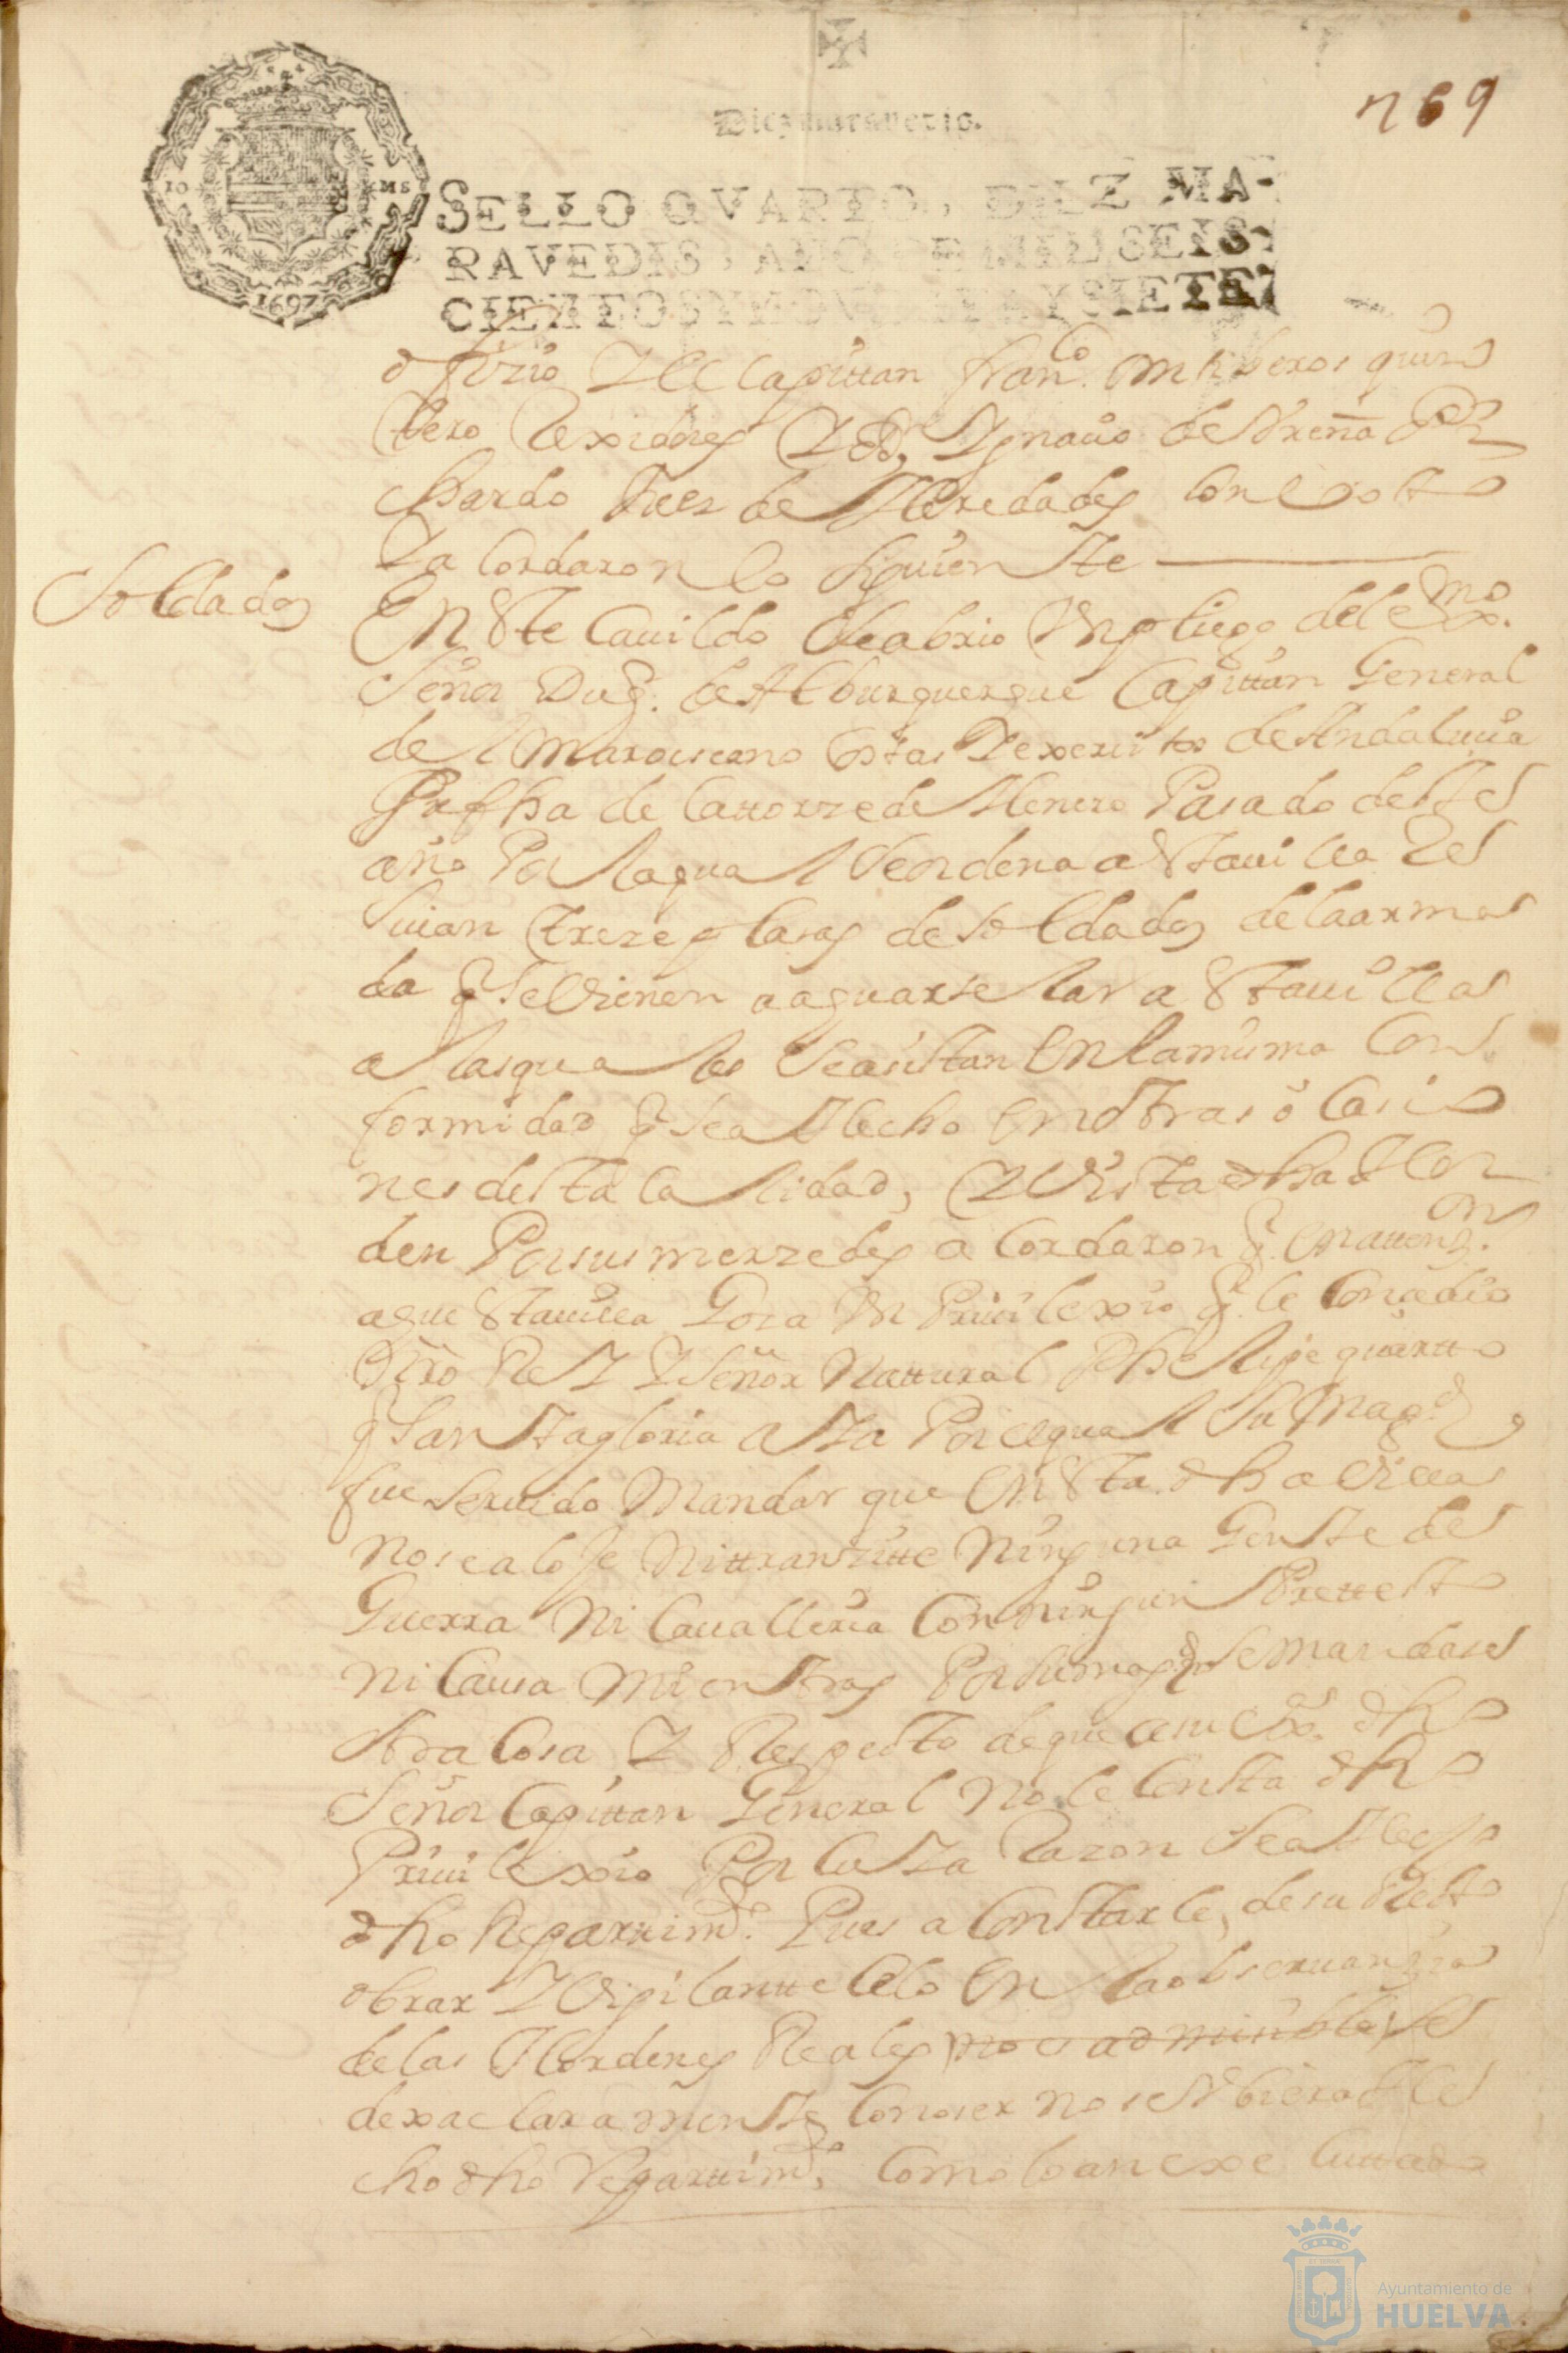 Diez maravedis.
769
SELLO QVARTO, DIEZ MA-
RAVEDIS, AÑO DE MIL SEIS
CIENTOS Y NOVENTA Y SIETE
1697
ofizio Y el Capittan franco. quin
tero Rexidores Y D. Ygnacio de
chardo Juez de Heredades
Y acordaron lo siguienste
Soldados
En Este Cauildo se abrio Un pliego del exmo.
Señor Duq. de Alburquerque Capittan General
del mar oceano Costas Y exercitos de Andalucia
Su fha de Cattorze de Henero Pasado deste
año Por la qual se ordena a Sta uilla Re
siuan treze plasas de Soldados de la arma
da q se Vienen a aquarselar a Sta uilla
a las quales se asistan En la misma Con
formidad q se a Hecho En otras ocasio
nes desta Calidad, Y Vista dha Hor
den Por sus merzedes acordaron q. En attenon.
a que Sta uilla Goza Un Priuilexio q. le Consedio
Nro Rey Y Señor Nattural Phelipe quartto
q Santa gloria aya Por el qual Su Magd
fue Seruido Mandar que En Sta dha Villa
no se aloje Ni ttranzitte Ninguna Genste de
Guerra Ni Caualleria Con ningun Prettesto
ni Causa Mienstras Por su magd no se mandase
otra Cosa Y Respecto de que a su Exa. dho
Señor Capittan General No le Consta dho
Priuilexio Por Cuya Razon Se a Hecho
dho Repartimto. Pues a Constarle, de su Recto
obrar Y Vigilantte Celo En la obseruanzia
de las Hordenes Reales se
dexa claramenste Conoser no se Vbiera He
cho dho Reparttimto, Como lo an exe Cuttado
Ayuntamiento de
HUELVA